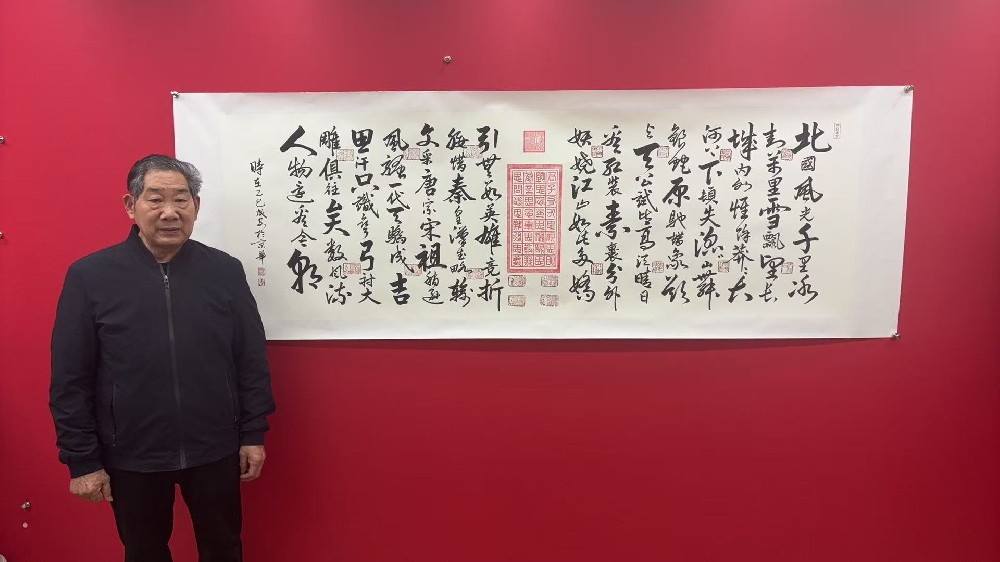 北國風光千里冰
封萬里雪飄望長
城内外惟餘莽莽大
河上下頓失滔滔山舞
銀蛇原馳蠟象欲
与天公試比高須晴日
看紅裝素裹分外
妖嬈江山如此多嬌
引無數英雄竞折
腰惜秦皇漢武略輸
文采唐宗宋祖稍遜
風騷一代天驕成吉
思汗只識彎弓射大
雕俱往矣數風流
人物還看今朝
時在乙巳於京華